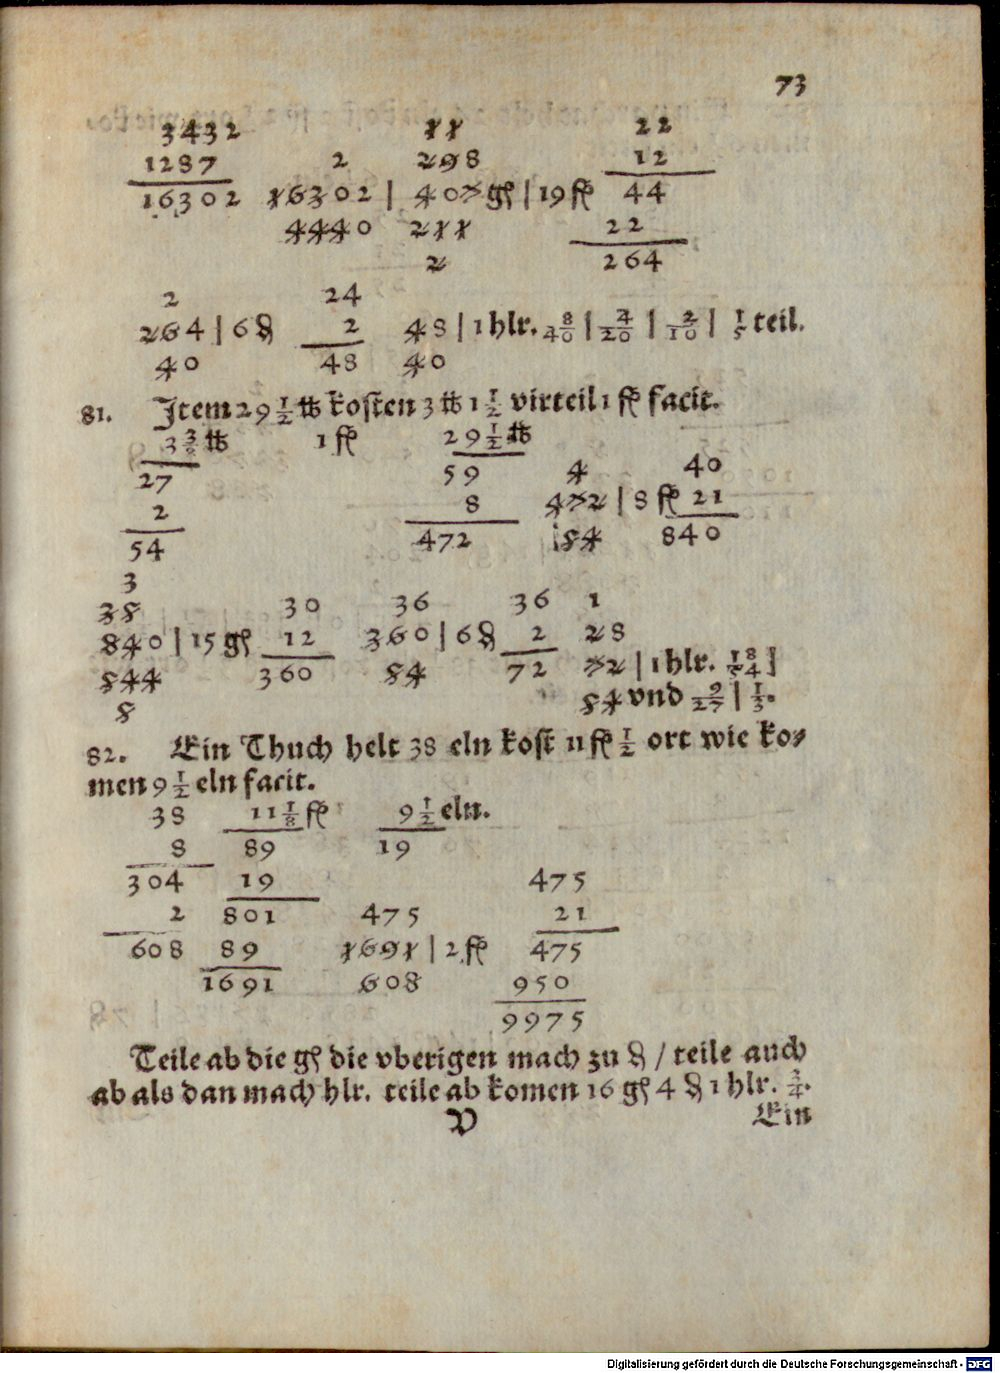 73
3432 11 22
1287 2 298 12
16302 16302 | 407 gſ | 19 fl 44
4440 211 22
2 264
2 24
264 | 6 ₰ 2 48 | 1 hlr. 8/40 | 4/20 | 2/10 | 1/5 teil.
40 48 40
81. Item 29 1/2 ℔ koſten 3 ℔ 1 1/2 virteil 1 fl facit.
3 3/8 ℔ 1 fl 29 1/2 ℔
27 59 4 40
2 8 472 | 8 fl 21
54 472 54 840
3
38 30 36 36 1
840 | 15 gſ 12 360 | 6 ₰ 2 28
544 360 54 72 72 | 1 hlr. 18/54 ]
5 54 vnd 9/27 | 1/3.
82. Ein Thuch helt 38 eln koſt 11 fl 1/2 ort wie ko⸗
men 9 1/2 eln facit.
38 11 1/8 fl 9 1/2 eln.
8 89 19
304 19 475
2 801 475 21
608 89 1691 | 2 fl 475
1691 608 950
9975
Teile ab die gſ die vberigen mach zu ₰ / teile auch
ab als dan mach hlr. teile ab komen 16 gſ 4 ₰ 1 hlr. 3/4.
V Ein
Digitalisierung gefördert durch die Deutsche Forschungsgemeinschaft - DFG